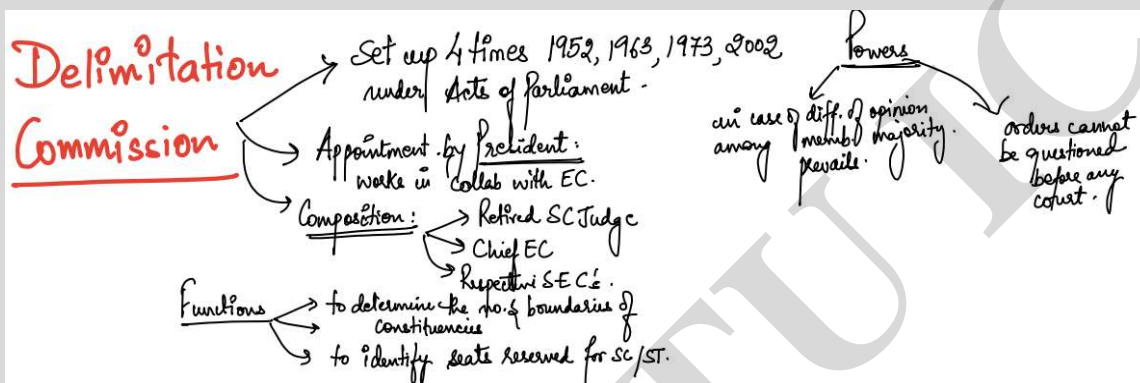 Delimitation
Commission
Set up 4 times 1952, 1963, 1973, 2002
under Acts of Parliament.
Appointment by President:
works in collab with EC.
Composition:
Retired SC Judge
Chief EC
Respective SEC's.
Functions
to determine the no. & boundaries of
constituencies
to identify seats reserved for SC/ST.
Powers
in case of diff. of opinion
among memb. majority
prevails.
orders cannot
be questioned
before any
court.
TU IC